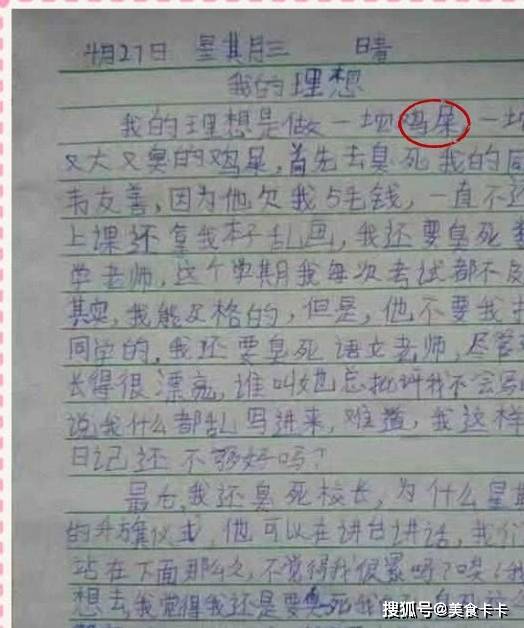 4月27日 星其月三 日晴
我的理想
我的理想是做一坨鸡屎，一坨
又大又臭的鸡屎，首先去臭死我的同
韦友善，因为他欠我5毛钱，一直不还
上课还拿我本子乱画，我还要臭死数
学老师，这个学期我每次考试都不及
其实，我能及格的，但是，他不要我抄
同学的，我还要臭死语文老师，尽管
长得很漂亮，谁叫她总批评我不会写
说我什么都乱写进来，难道，我这样
日记还不够好吗？
最后，我还臭死校长，为什么星期
的升旗仪式，他可以在讲台讲话，我们
站在下面那么久，不觉得我很累吗？唉！我
想去我觉得我还是要臭死我
搜狐号@美食卡卡